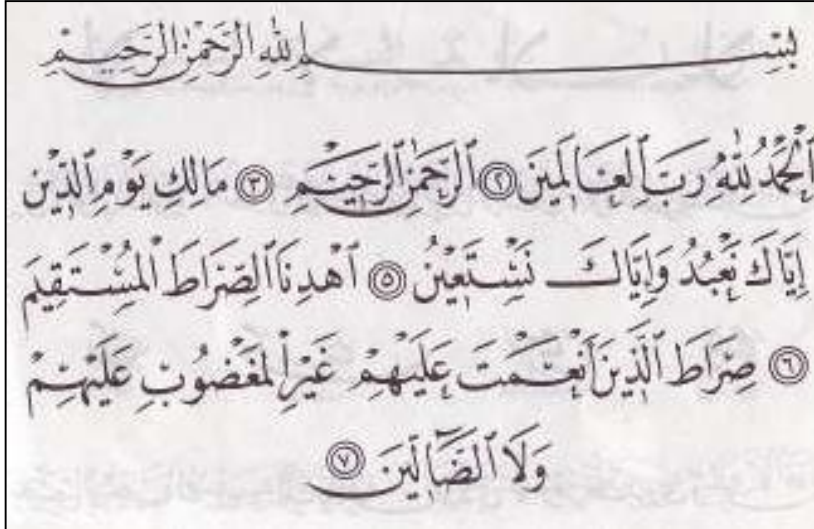 بِسْمِ اللهِ الرَّحْمٰنِ الرَّحِيمِ
اَلْحَمْدُ لِلّٰهِ رَبِّ الْعَالَمِينَ ٢ اَلرَّحْمٰنِ الرَّحِيمِ ٣ مَالِكِ يَوْمِ الدِّينِ
إِيَّاكَ نَعْبُدُ وَإِيَّاكَ نَسْتَعِينُ ٥ اَهْدِنَا الصِّرَاطَ الْمُسْتَقِيمَ
٦ صِرَاطَ الَّذِينَ أَنْعَمْتَ عَلَيْهِمْ غَيْرِ الْمَغْضُوبِ عَلَيْهِمْ
وَلَا الضَّآلِّينَ ٧